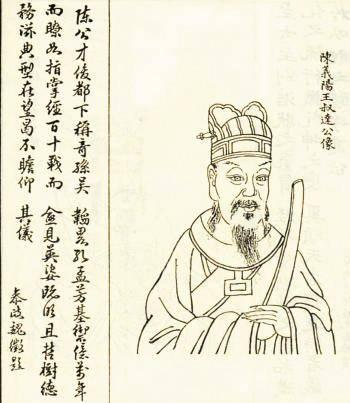 陳義陽王叔達公像
陳公才俊都下稱奇孫吳韜畧孔孟芳基萬年
而瞭如指掌經百十戰而益見英姿既明且哲樹德
務滋典型在望曷不瞻仰其儀
參政魏徵題